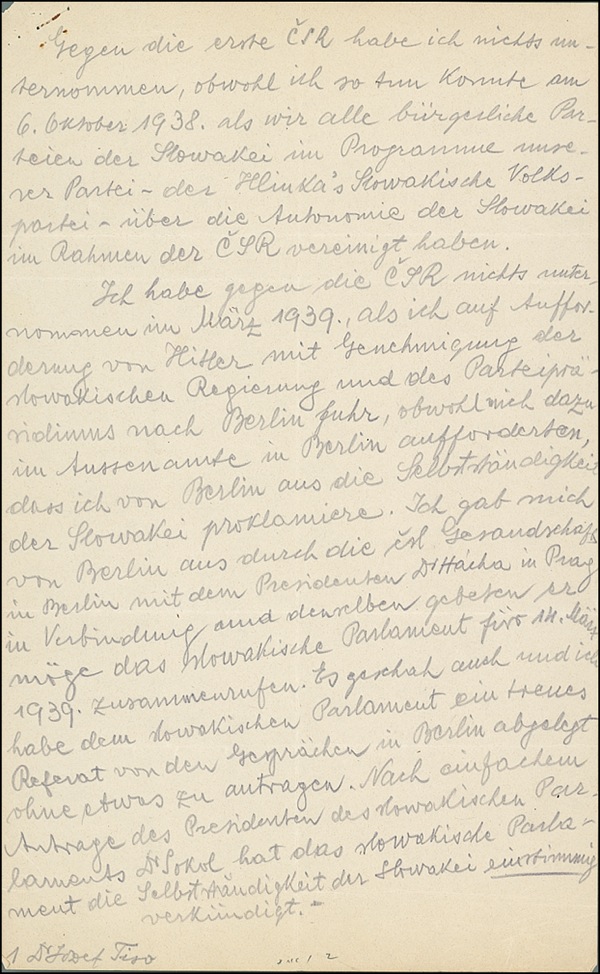 Gegen die erste ČSR habe ich nichts un-
ternommen, obwohl ich so tun konnte am
6. Oktober 1938. als wir alle bürgerliche Par-
teien der Slowakei im Programme unse-
rer Partei - der Hlinka's Slowakische Volks-
partei - über die Autonomie der Slowakei
im Rahmen der ČSR vereinigt haben.
Ich habe gegen die ČSR nichts unter-
nommen im März 1939., als ich auf Auffor-
derung von Hitler mit Genehmigung der
slowakischen Regierung und des Parteiprä-
sidiums nach Berlin fuhr, obwohl mich dazu
im Aussenamte in Berlin aufforderten,
dass ich von Berlin aus die Selbstständigkeit
der Slowakei proklamiere. Ich gab mich
von Berlin aus durch die čsl. Gesandschaft
in Berlin mit dem Presidenten Dr Hácha in Prag
in Verbindung und denselben gebeten er
möge das slowakische Parlament fürs 14. März
1939. zusammenrufen. Es geschah auch und ich
habe dem slowakischen Parlament ein treues
Referat von den Gesprächen in Berlin abgelegt
ohne etwas zu antragen. Nach einfachem
Antrage des Presidenten des slowakischen Par-
laments Dr Sokol hat das slowakische Parla-
ment die Selbstständigkeit der Slowakei einstimmig
verkündigt. -
1 Dr Jozef Tiso
2